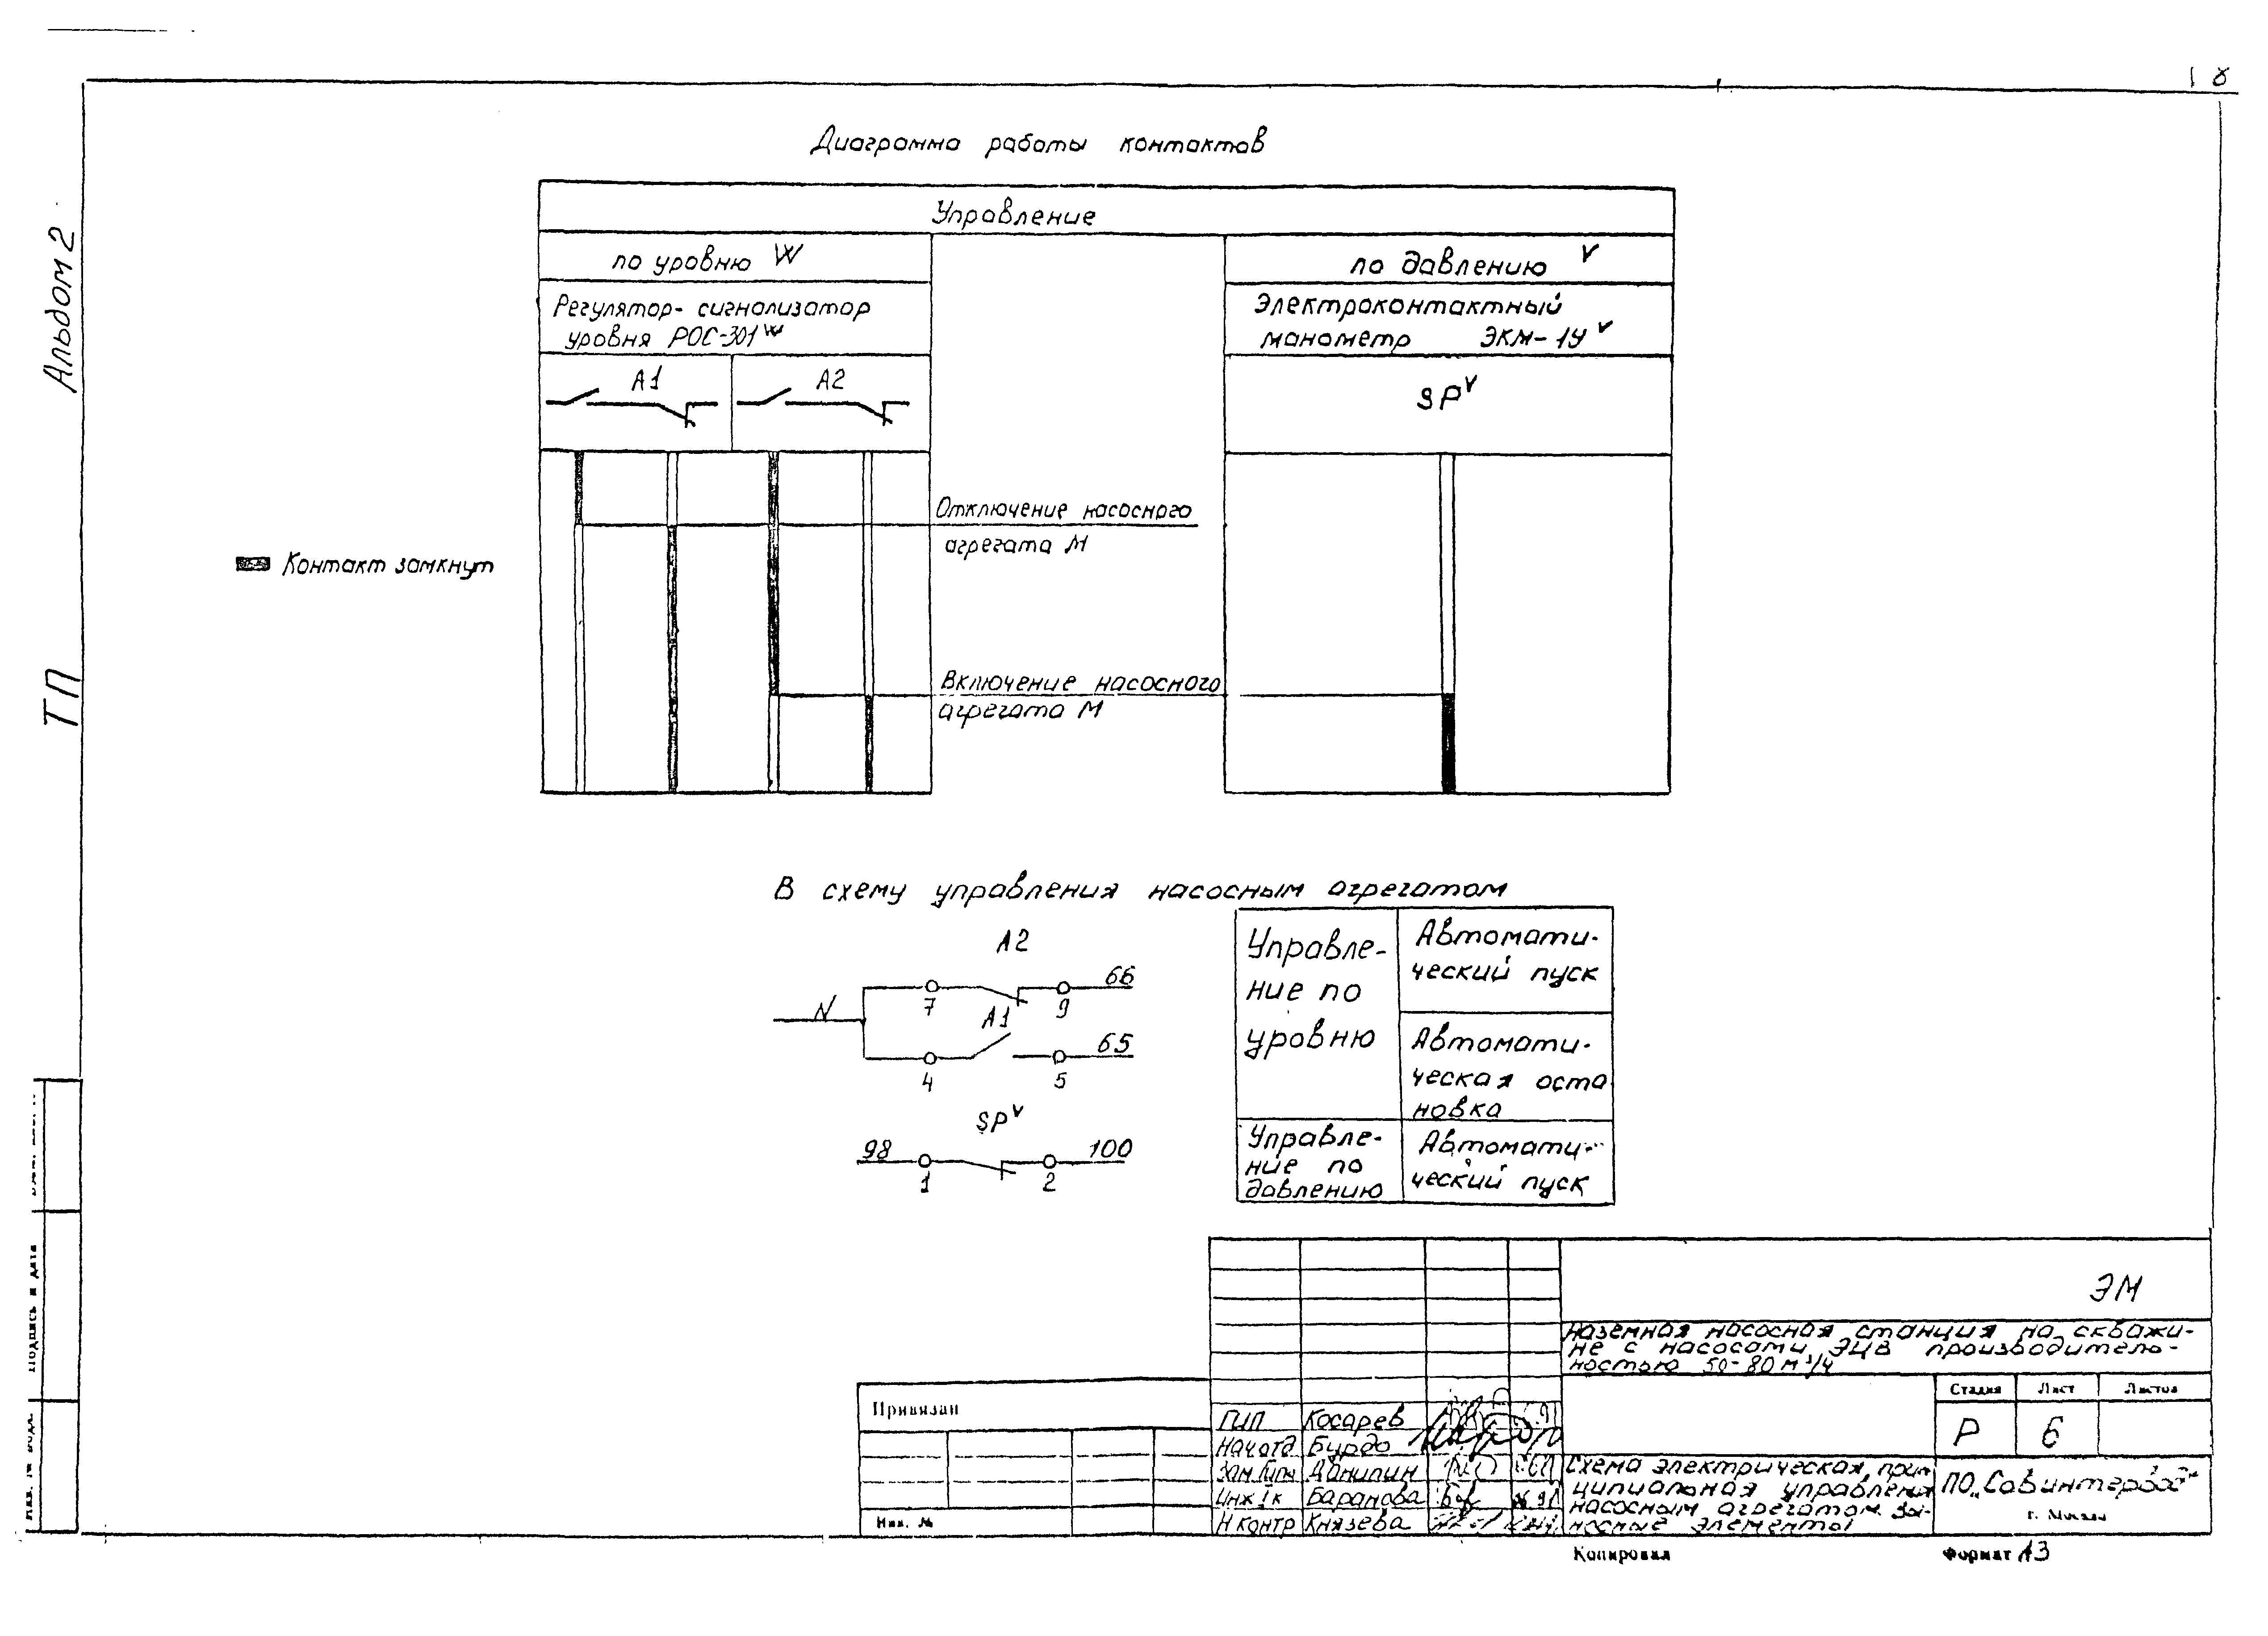 8
Альбом 2
ТП
Диаграмма работы контактов
Управление
по уровню W
по давлению V
Регулятор-сигнализатор
уровня РОС-301 W
Электроконтактный
манометр ЭКМ-1У V
А1
А2
SP V
Отключение насосного
агрегата М
Контакт замкнут
Включение насосного
агрегата М
В схему управления насосным агрегатом
А2
N
7
9
66
А1
4
5
65
SP V
98
1
2
100
Управле-
ние по
уровню
Автомати-
ческий пуск
Автомати-
ческая оста
новка
Управле-
ние по
давлению
Автомати-
ческий пуск
ЭМ
Наземная насосная станция на скважи-
не с насосами ЭЦВ производитель-
ностью 50-80 м³/ч
Стадия Лист Листов
Р 6
Привязан
Инв. №
ГИП Косарев
Нач отд Бурдо
Зам. Гипа Данилин
Инж I к Баранова
Н контр Князева
Схема электрическая прин
ципиальная управления
насосным агрегатом. Вы-
носные элементы
ПО „Совинтервод"
г. Москва
Подпись и дата
Копировал
Формат А3